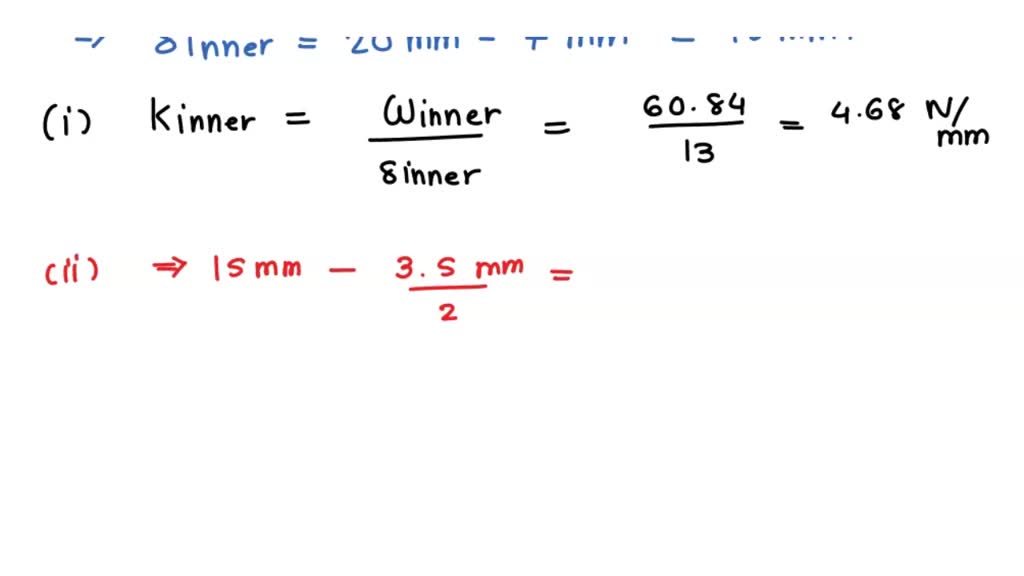 → δinner = 20 mm - 7 mm =
(i) Kinner = Winner / δinner = 60.84 / 13 = 4.68 N/mm
(ii) ⇒ 15 mm - 3.5 mm / 2 =